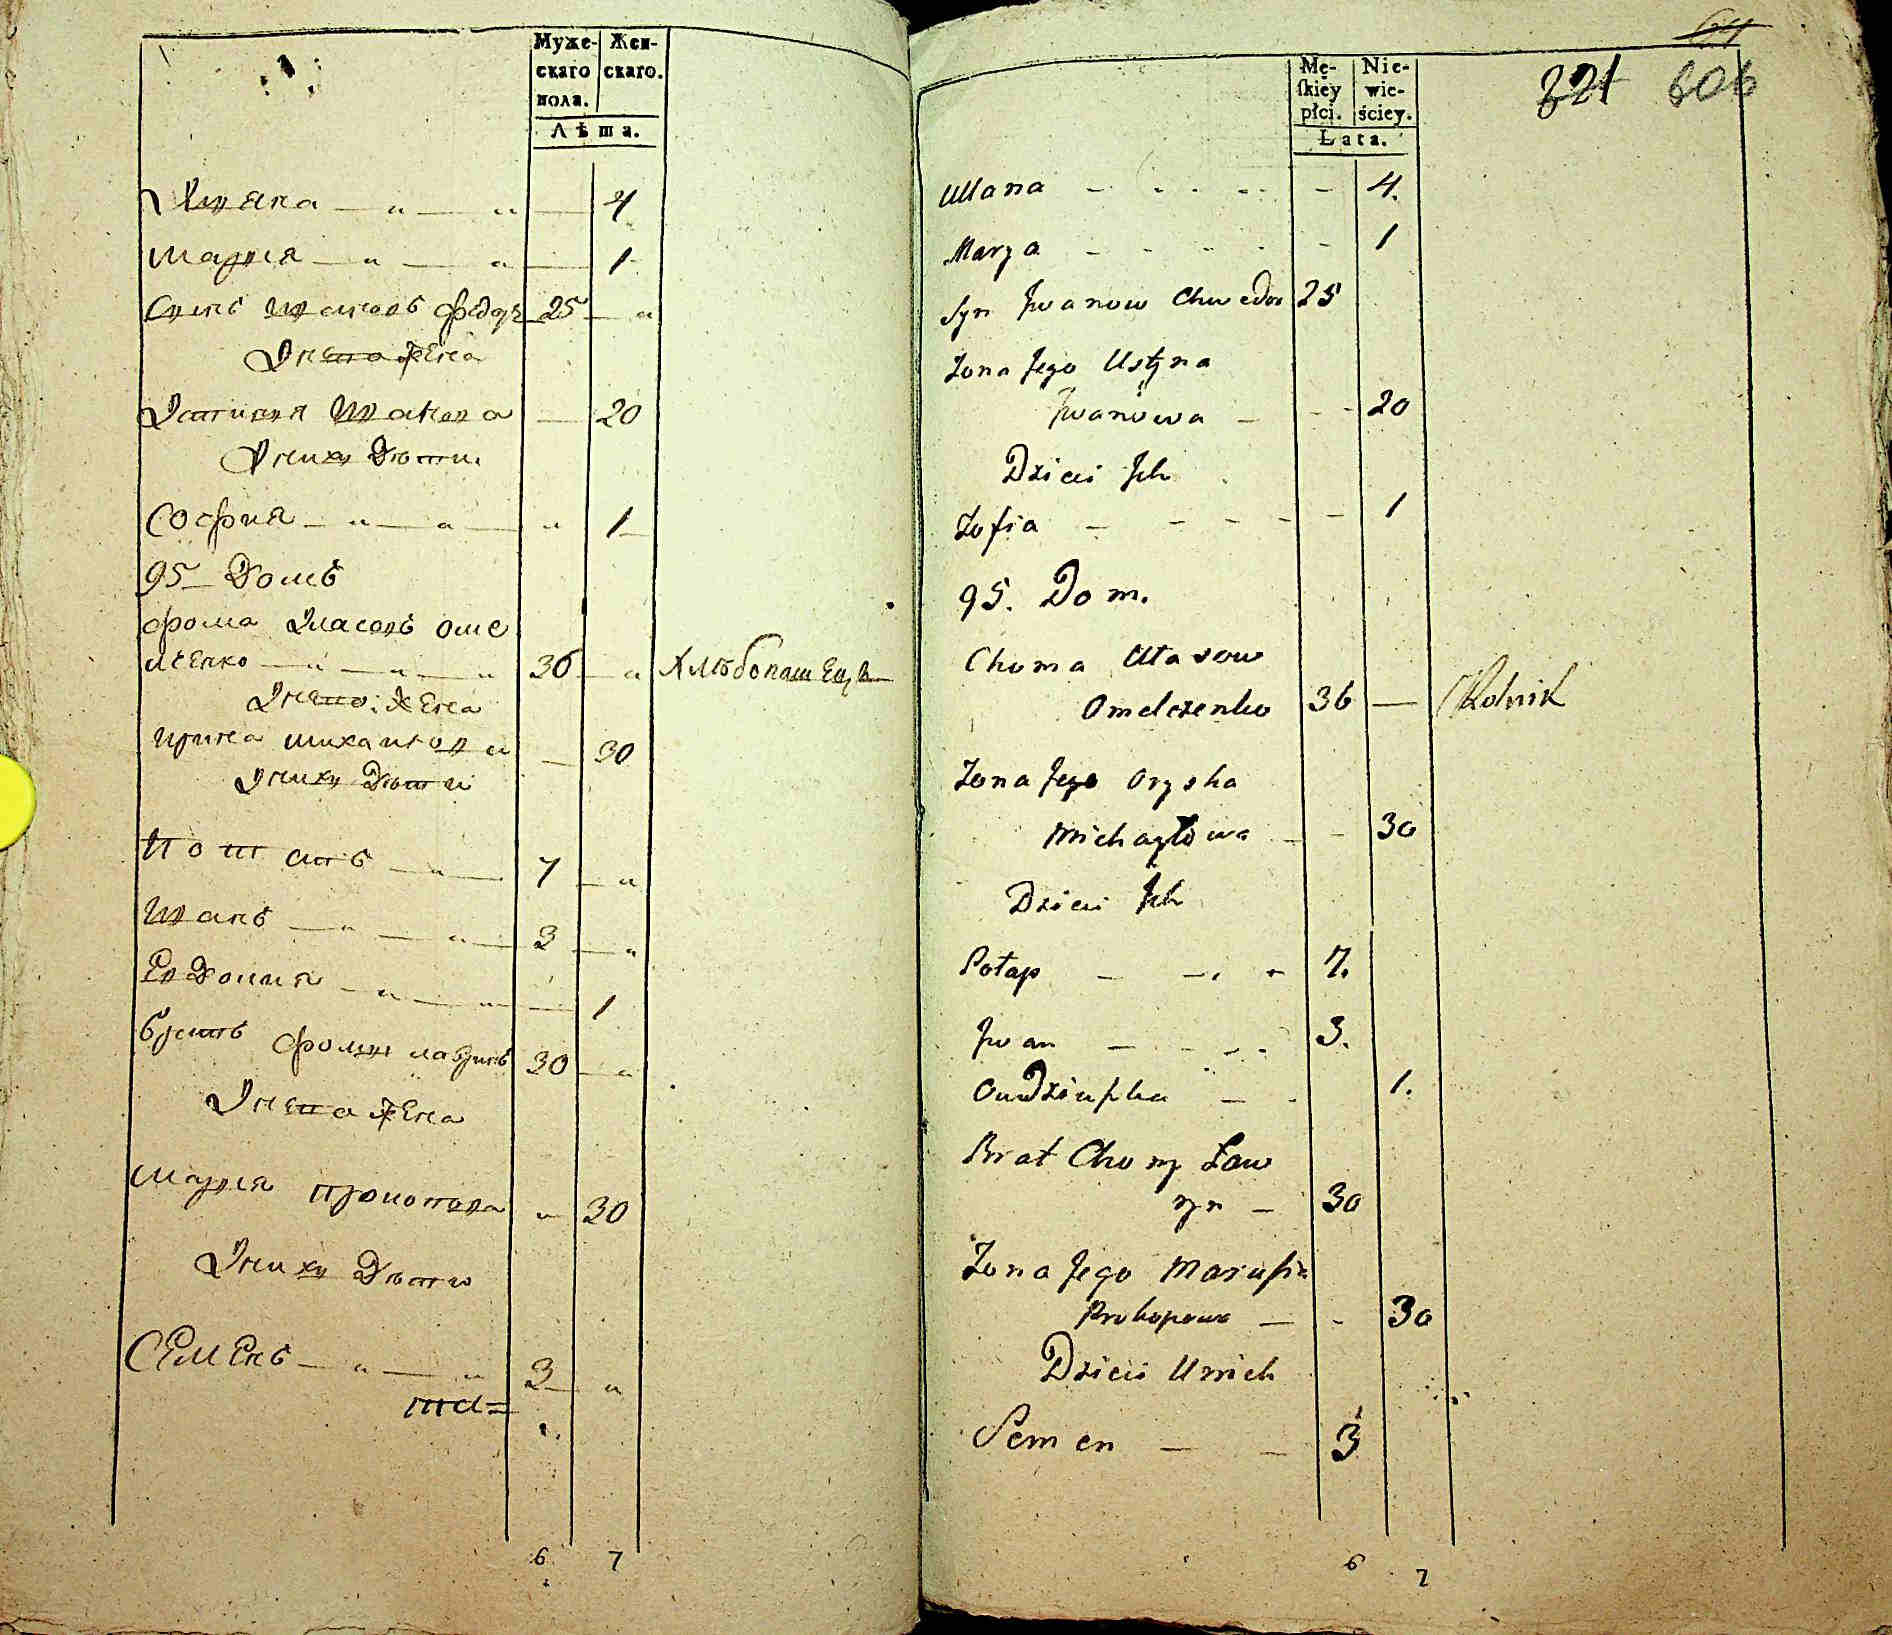 Муже- Жен-
скаго скаго.
пола.
Лѣта.
Уляна — „ — „ — 4
Марія — „ — „ — 1
Сынъ Ивановъ Федоръ 25 — „
Унего Жена
Устинія Иванова — 20
Унихъ Дѣти
Софія — „ — „ — „ 1
95 Домъ
Фома Власовъ Оме
лченко — „ — „ — „ 36 — „ Хлѣбопашецъ
Унего Жена
Ирина Михайлова — 30
Унихъ Дѣти
Потапъ — „ — 7 — „
Иванъ — „ — „ — 3 — „
Евдокия — „ — „ — 1
Братъ Фомы Лавринъ 30 — „
Унего Жена
Марія Прокопова „ 30
Унихъ Дѣти
Семенъ — „ — „ 3 — „
та=
6 7
64
321 606
Mę- Nie-
ſkiey wie-
płci. ściey.
Lata.
Ulana - - - - - 4.
Marya - - - - - - 1
Syn Jwanow Chwedor 25
Zona Jego Ustyna
Jwanowa - - - 20
Dzieci Jch
Zofia - - - - - - 1
95. Dom.
Choma Ułasow
Omelczenko 36 — Rolnik
Zona Jego Oryska
Michayłowa - - 30
Dzieci Jch
Potap - - - - 7.
Jwan - - - - 3.
Owdziuszka - - 1.
Brat Chomy Ław
ryn - 30
Zona Jego Marusia
Prokopowa - - 30
Dzieci Unich
Semen - - 3
6 7